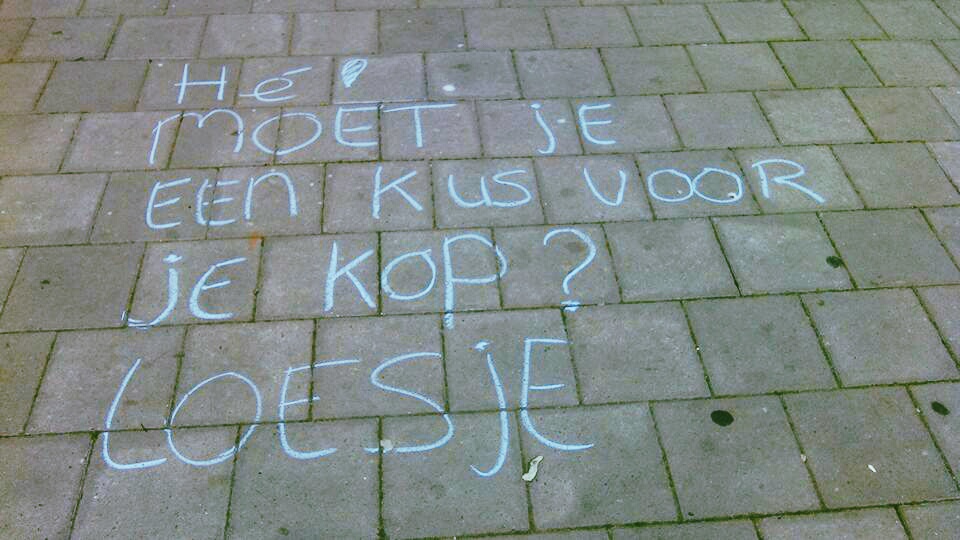 Hé!
MOET je
EEN KUS VOOR
je KOP?
LOESje